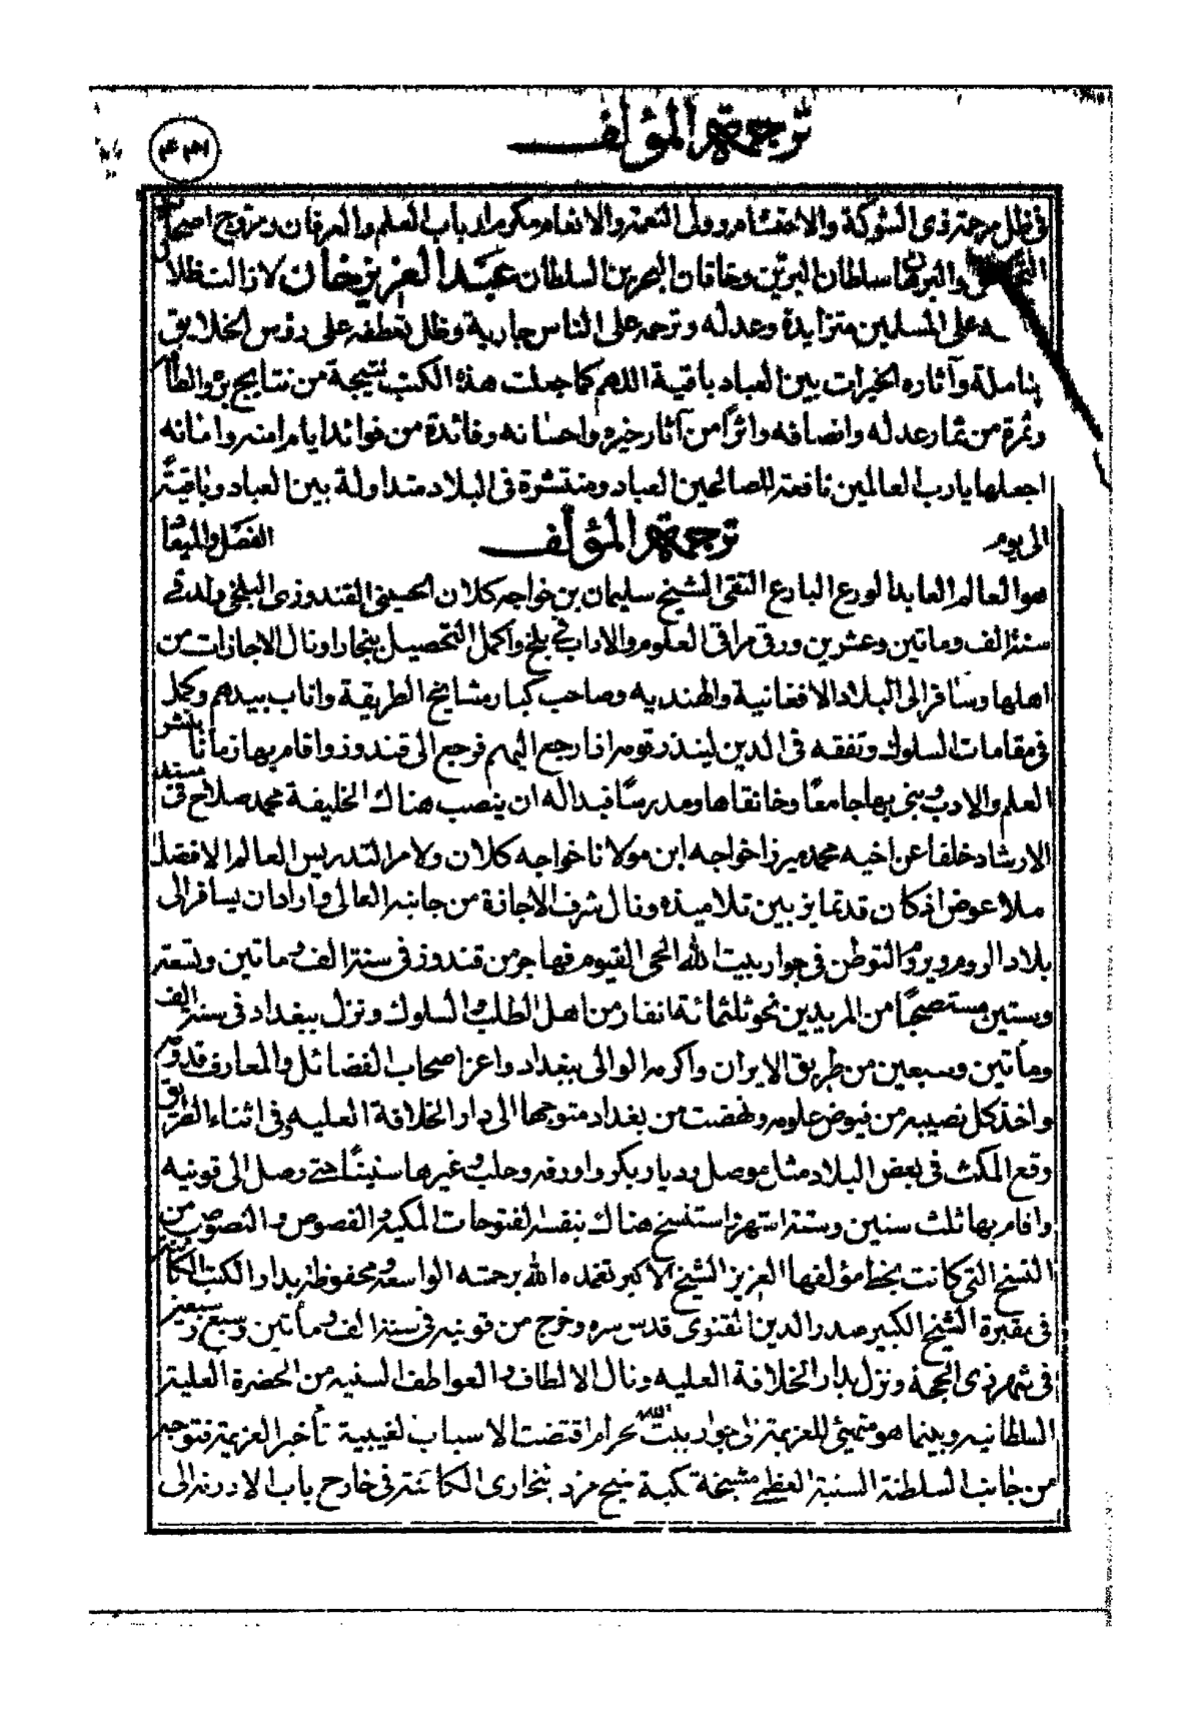 ترجمة المؤلف
في ظل مرحمة ذى الشوكة والاحتشام وولى النعمة والانعام مكرم ارباب العلم والعرفان ومروج اصحاب
والبرهان سلطان البرين وخاقان البحرين السلطان عبد العزيز خان لا زالت ظلا
على المسلمين متزايدة وعدله وترحمه على الناس جارية وظل تعطفه على رؤس الخلايق
شاملة وآثاره الخيرات بين العباد باقية اللهم كما جعلت هذه الكتب نتيجة من نتايج بره والطافه
وثمرة من ثمار عدله وانصافه واثراً من آثار خيره واحسانه وفائدة من فوائد ايام امنه وامانه
اجعلها يا رب العالمين نافعة للصالحين العباد ومنتشرة فى البلاد متداولة بين العباد وباقية
الى يوم ترجمة المؤلف الفصل والميعاد
هو العالم العابد الورع البارع التقى الشيخ سليمان بن خواجه كلان الحسينى القندوزى البلخى ولد فى
سنة الف وماتين وعشرين ورقى مراقى العلوم والاداب فى بلخ واكمل التحصيل ببخارا ونال الاجازات من
اهلها وسافر الى البلاد الافغانية والهنديه وصاحب كبار مشايخ الطريقة واناب بيدهم وكمل
فى مقامات السلوك وتفقه فى الدين لينذر قومه اذا رجع اليهم فرجع الى قندوز واقام بها زمانا ينشر
العلم والادب بنى بها جامعا وخانقاها ومدرسا فبدا له ان ينصب هناك الخليفة محمد صلاح فى مسند
الارشاد خلفا عن اخيه محمد ميرزا خواجه ابن مولانا خواجه كلان ولامر التدريس العالم الافضل
ملا عوض اذ كان قد تمايز بين تلاميذه ونال شرف الاجازة من جانبه العالى وآراد ان يسافر الى
بلاد الروم ويروم التوطن فى جوار بيت الله الحى القيوم فهاجر من قندوز فى سنة الف وماتين وتسعة
وستين مستصحبًا من المريدين نحو ثلثمائة انفار من اهل الطلب والسلوك ونزل ببغداد فى سنة الف
وماتين وسبعين من طريق الايران واكرمه الوالى ببغداد واعز اصحاب الفضائل والمعارف قدومه
واخذ كل نصيبه من فيوض علومه ونهضت من بغداد متوجها الى دار الخلافة العليه وفى اثناء الطريق
وقع المكث فى بعض البلاد مثل موصل وديار بكر واورفه وحلب وغيرها سنينًا حتى وصل الى قونيه
واقام بها ثلث سنين وستة اشهر استنسخ هناك بنفسه الفتوحات المكية والفصوص والنصوص من
النسخ التى كانت بخط مؤلفها العزيز الشيخ الاكبر تغمده الله برحمته الواسعة محفوظة بدار الكتب الكائنة
فى مقبرة الشيخ الكبير صدر الدين القنوى قدس سره وخرج من قونيه فى سنة الف ومأتين وسبع وسبعين
فى شهر ذى الحجة ونزل بدار الخلافة العليه ونال الالطاف والعواطف السنيه من الحضرة العلية
السلطانيه وبينما هو متهيئ للعزيمة الى جوار بيت الله الحرام اقتضت الاسباب الغيبية تأخير العزيمة فتوجه
من جانب السلطنة السنية العظمى مشيخة تكية شيخ مراد بخارى الكائنة فى خارج باب الادرنه الى